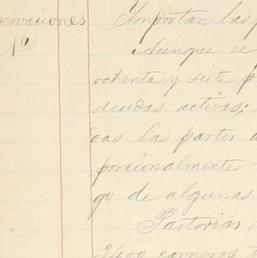 ervaciones
1ª
Importan las
Aunque se
ochenta y siete p
deudas activas;
das las partes
porcionalmente
go de algunas
Pastorias
3400 carneros